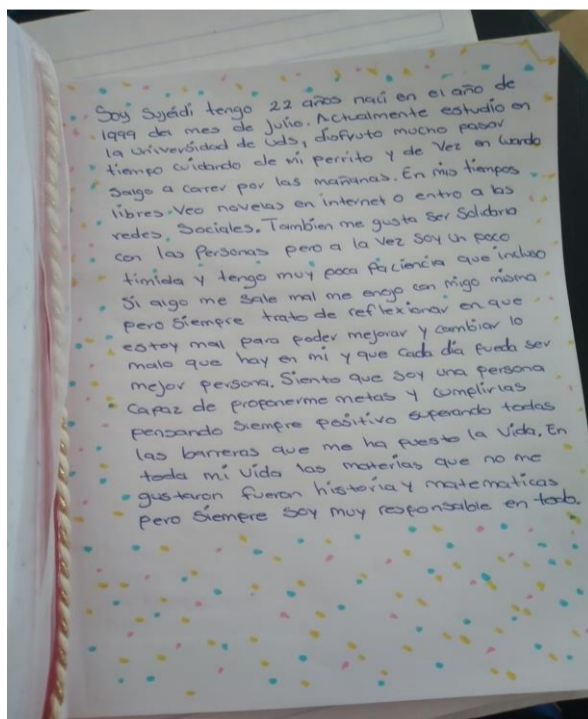 Soy Sujeidi tengo 22 años nací en el año de
1999 del mes de Julio. Actualmente estudio en
la universidad de uds, disfruto mucho pasar
tiempo cuidando de mi perrito y de Vez en cuando
salgo a correr por las mañanas. En mis tiempos
libres. Veo novelas en internet o entro a las
redes, Sociales. Tambien me gusta ser Solidaria
con las Personas pero a la Vez soy un poco
timida y tengo muy poca paciencia que incluso
si algo me sale mal me enojo con migo misma
pero siempre trato de reflexionar en que
estoy mal para poder mejorar y cambiar lo
malo que hay en mi y que cada día pueda ser
mejor persona. Siento que soy una persona
capaz de proponerme metas y cumplirlas
pensando siempre positivo superando todas
las barreras que me ha puesto la Vida. En
toda mi vida las materias que no me
gustaron fueron historia y matematicas
pero siempre soy muy responsable en todo.